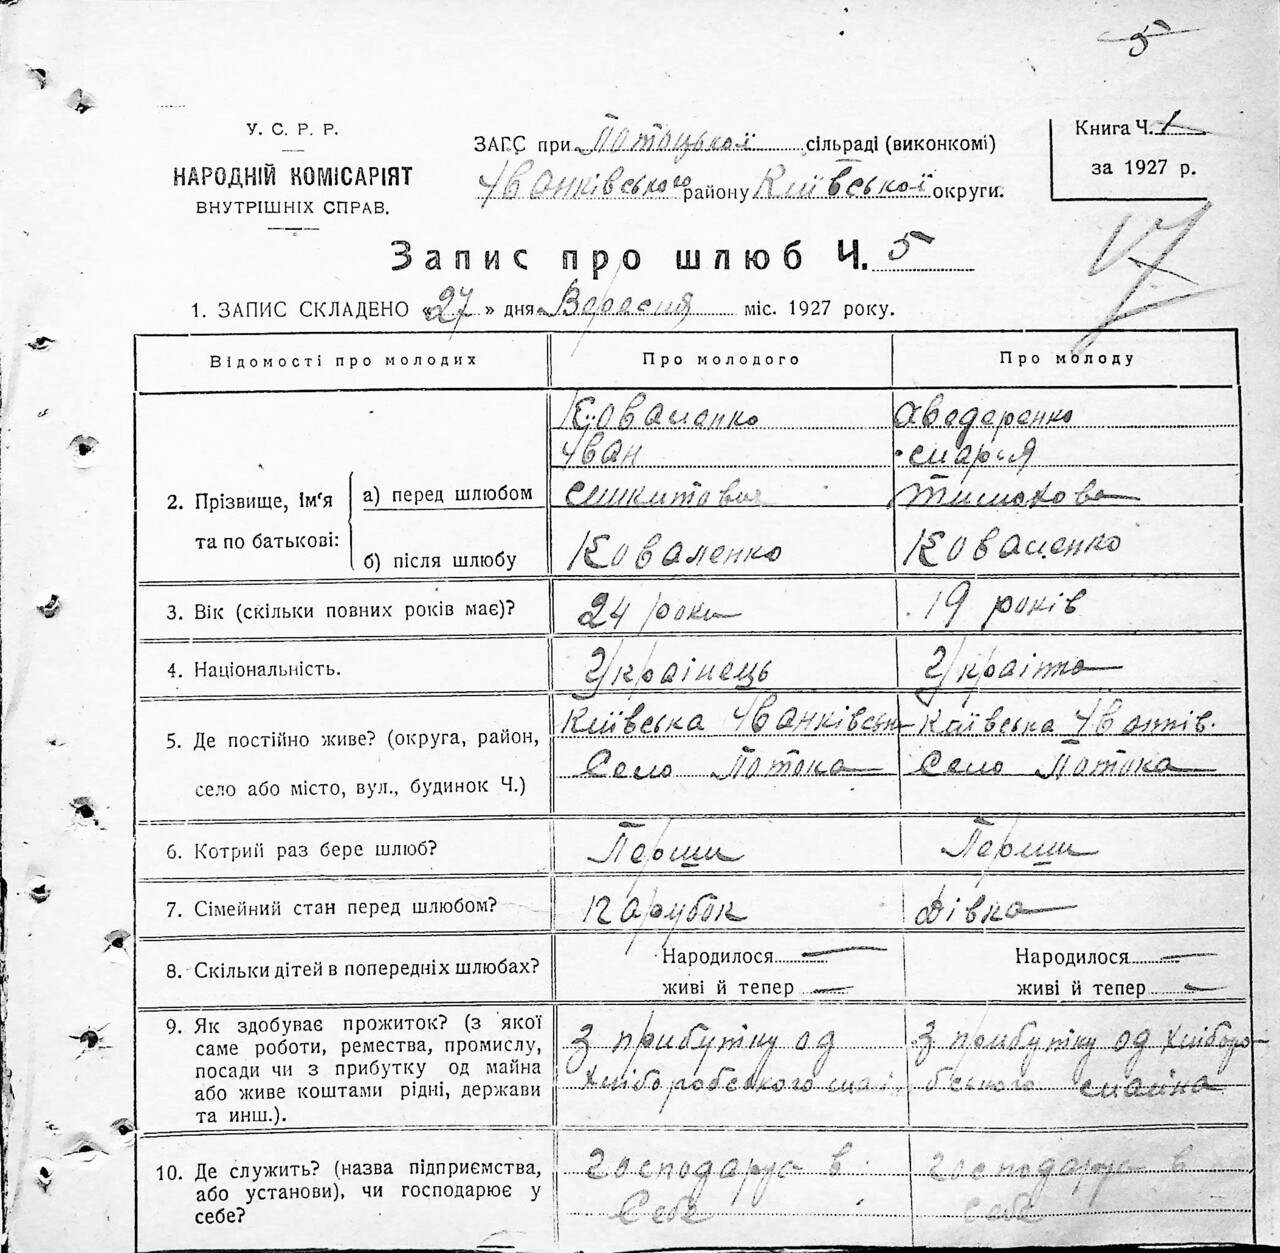 5
У. С. Р. Р.
НАРОДНІЙ КОМІСАРІЯТ
ВНУТРІШНІХ СПРАВ.
ЗАГС при Потоцькой сільраді (виконкомі)
Іванківського району Київської округи.
Книга Ч. 1
за 1927 р.
17
Запис про шлюб Ч. 5
1. ЗАПИС СКЛАДЕНО «27» дня Вересня міс. 1927 року.
Відомості про молодих Про молодого Про молоду
2. Прізвище, ім'я та по батькові:
а) перед шлюбом
Коваленко
Іван
Микитович
Марія
Тимохова
б) після шлюбу Коваленко Коваленко
3. Вік (скільки повних років має)? 24 роки 19 років
4. Національність. Українець Українка
5. Де постійно живе? (округа, район,
село або місто, вул., будинок Ч.)
Київська Іванківськ
Село Потока
Київська Іванків.
Село Потока
6. Котрий раз бере шлюб? Перши Перши
7. Сімейний стан перед шлюбом? Парубок Дівка
8. Скільки дітей в попередніх шлюбах? Народилося — Народилося —
живі й тепер — живі й тепер —
9. Як здобуває прожиток? (з якої
саме роботи, ремества, промислу,
посади чи з прибутку од майна
або живе коштами рідні, держави
та инш.).
З прибутіку од
хліборобського май
З прибутіку од хліборо-
бського майна
10. Де служить? (назва підприємства,
або установи), чи господарює у
себе?
Господарує в
Себе
Господарує в
Себе